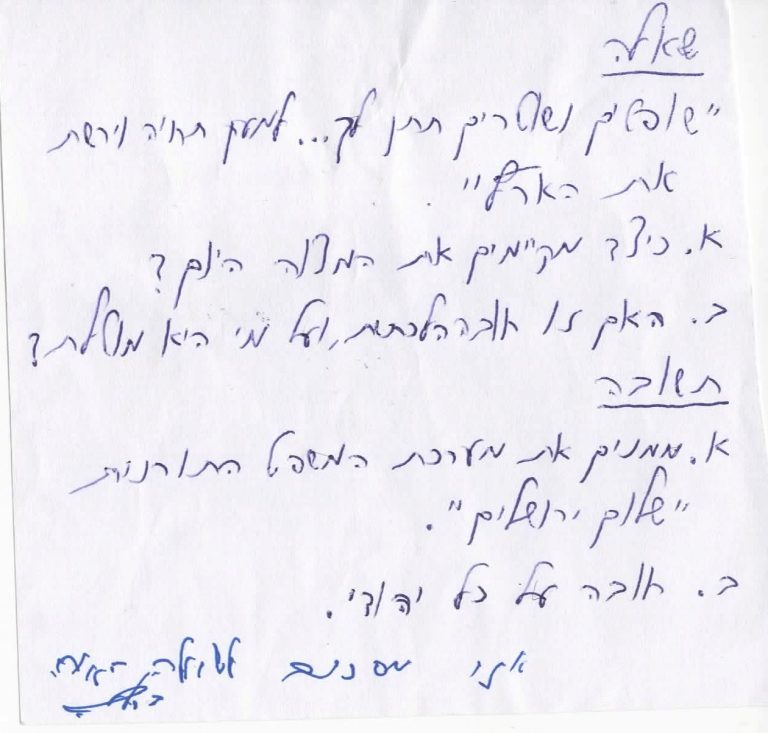 שאלה
"שופטים ושוטרים תתן לך... למען תחיה וירשת
את הארץ".
א. כיצד מקיימים את המצוה היום?
ב. האם זו חובה הלכתית, ועל מי היא מוטלת?
תשובה
א. ממנים את מערכת המשפט התורנית
"שלום ירושלים".
ב. חובה על כל יהודי.
אני מסכים